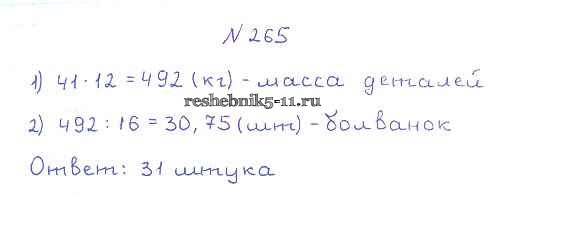 N 265
1) 41 · 12 = 492 (кг) - масса деталей
reshebnik5-11.ru
2) 492 : 16 = 30,75 (шт) - болванок
Ответ: 31 штука